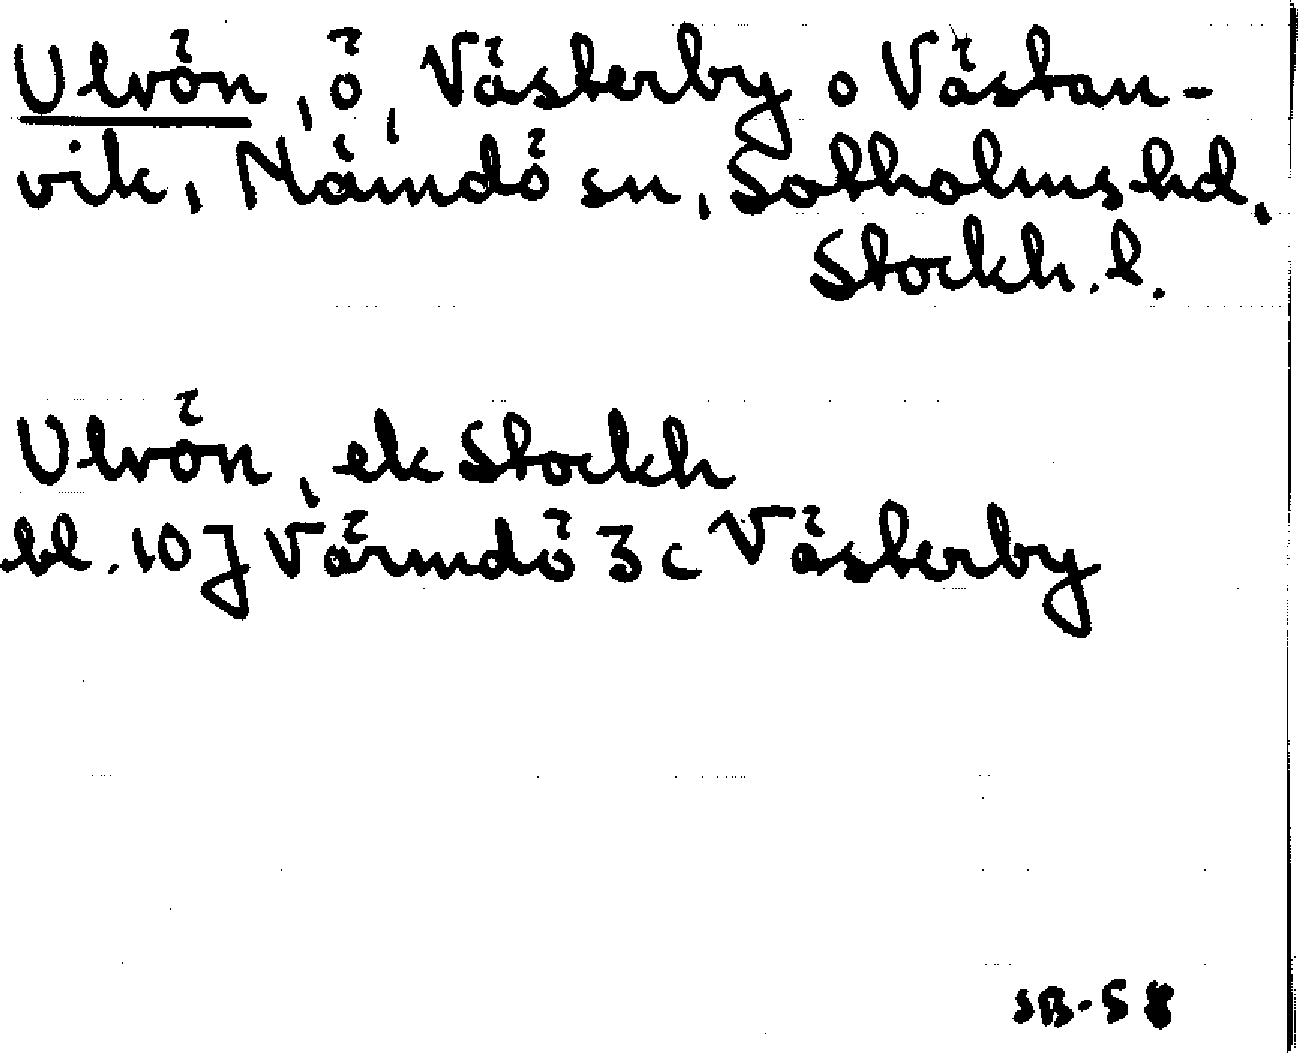 Ulvön, ö, Västerby o Västan-
vik, Nämdö sn, Sotholms hd,
Stockh. l.
Ulvön, ek Stockh
bl. 10 J Värmdö 3 c Västerby
SB-58